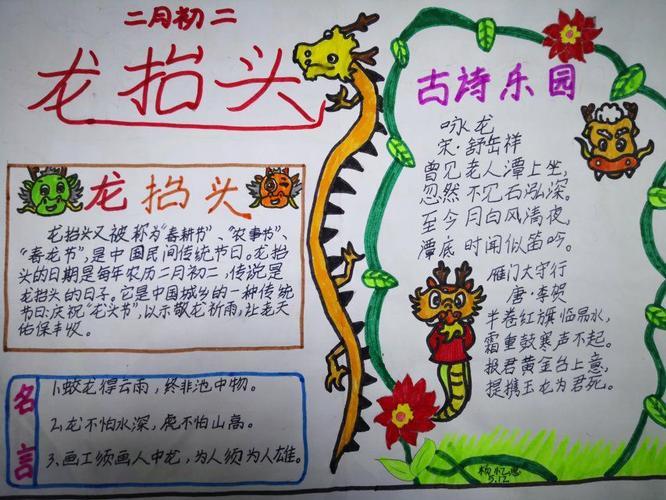 二月初二
龙抬头
龙抬头
龙抬头又被称为“春耕节”、“农事节”、
“春龙节”,是中国民间传统节日。龙抬
头的日期是每年农历二月初二,传说是
龙抬头的日子。它是中国城乡的一种传统
节日,庆祝“龙头节”,以示敬龙祈雨,让老天
佑保丰收。
名言
1.蛟龙得云雨,终非池中物。
2.龙不怕水深,虎不怕山高。
3.画工须画人中龙,为人须为人雄。
古诗乐园
咏龙
宋·舒岳祥
曾见老人潭上坐,
忽然不见石泓深。
至今月白风清夜,
潭底时闻似笛吟。
雁门太守行
唐·李贺
半卷红旗临易水,
霜重鼓寒声不起。
报君黄金台上意,
提携玉龙为君死。
5.12